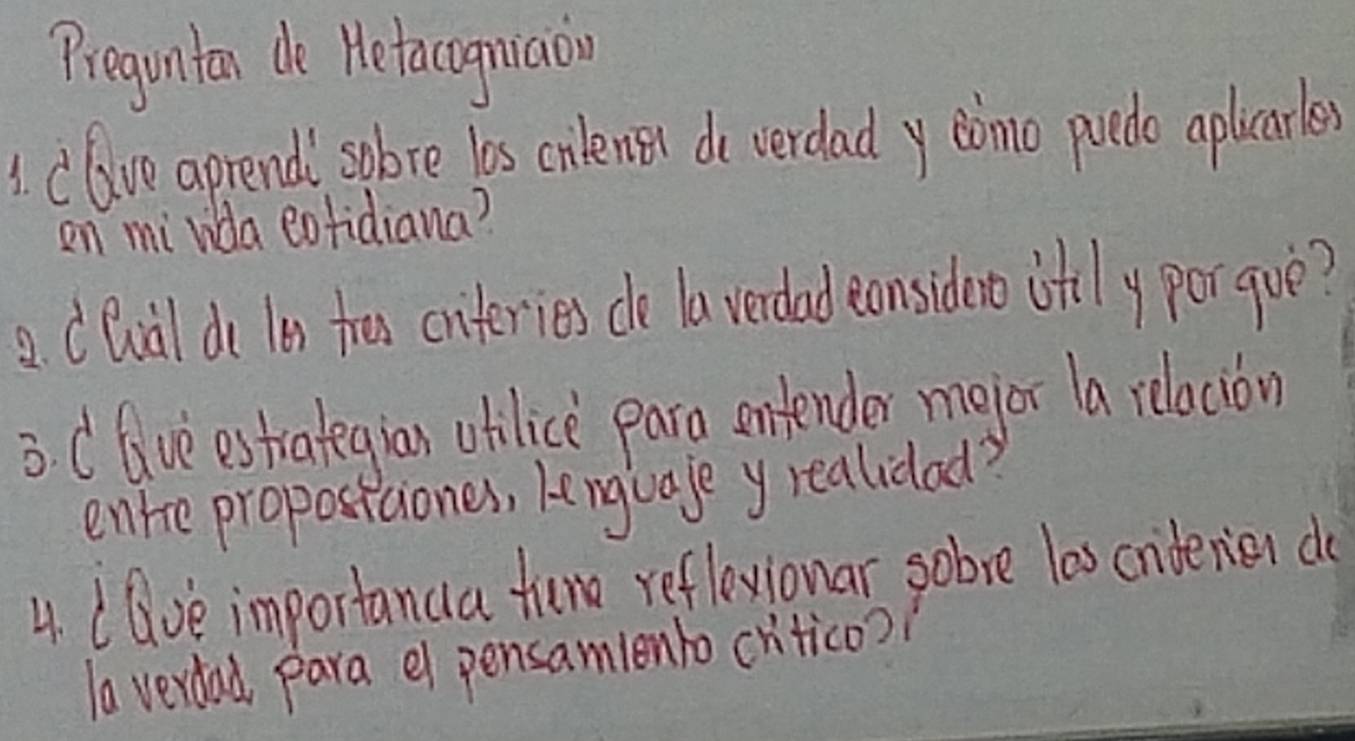 Preguntas de Metacognición
1. ¿Qué aprendí sobre los criterios de verdad y cómo puedo aplicarlos
en mi vida cotidiana?
2. ¿Cuál de los tres criterios de la verdad considero útil y por qué?
3. ¿Qué estrategias utilicé para entender mejor la relación
entre proposiciones, lenguaje y realidad?
4. ¿Qué importancia tiene reflexionar sobre los criterios de
la verdad para el pensamiento crítico?